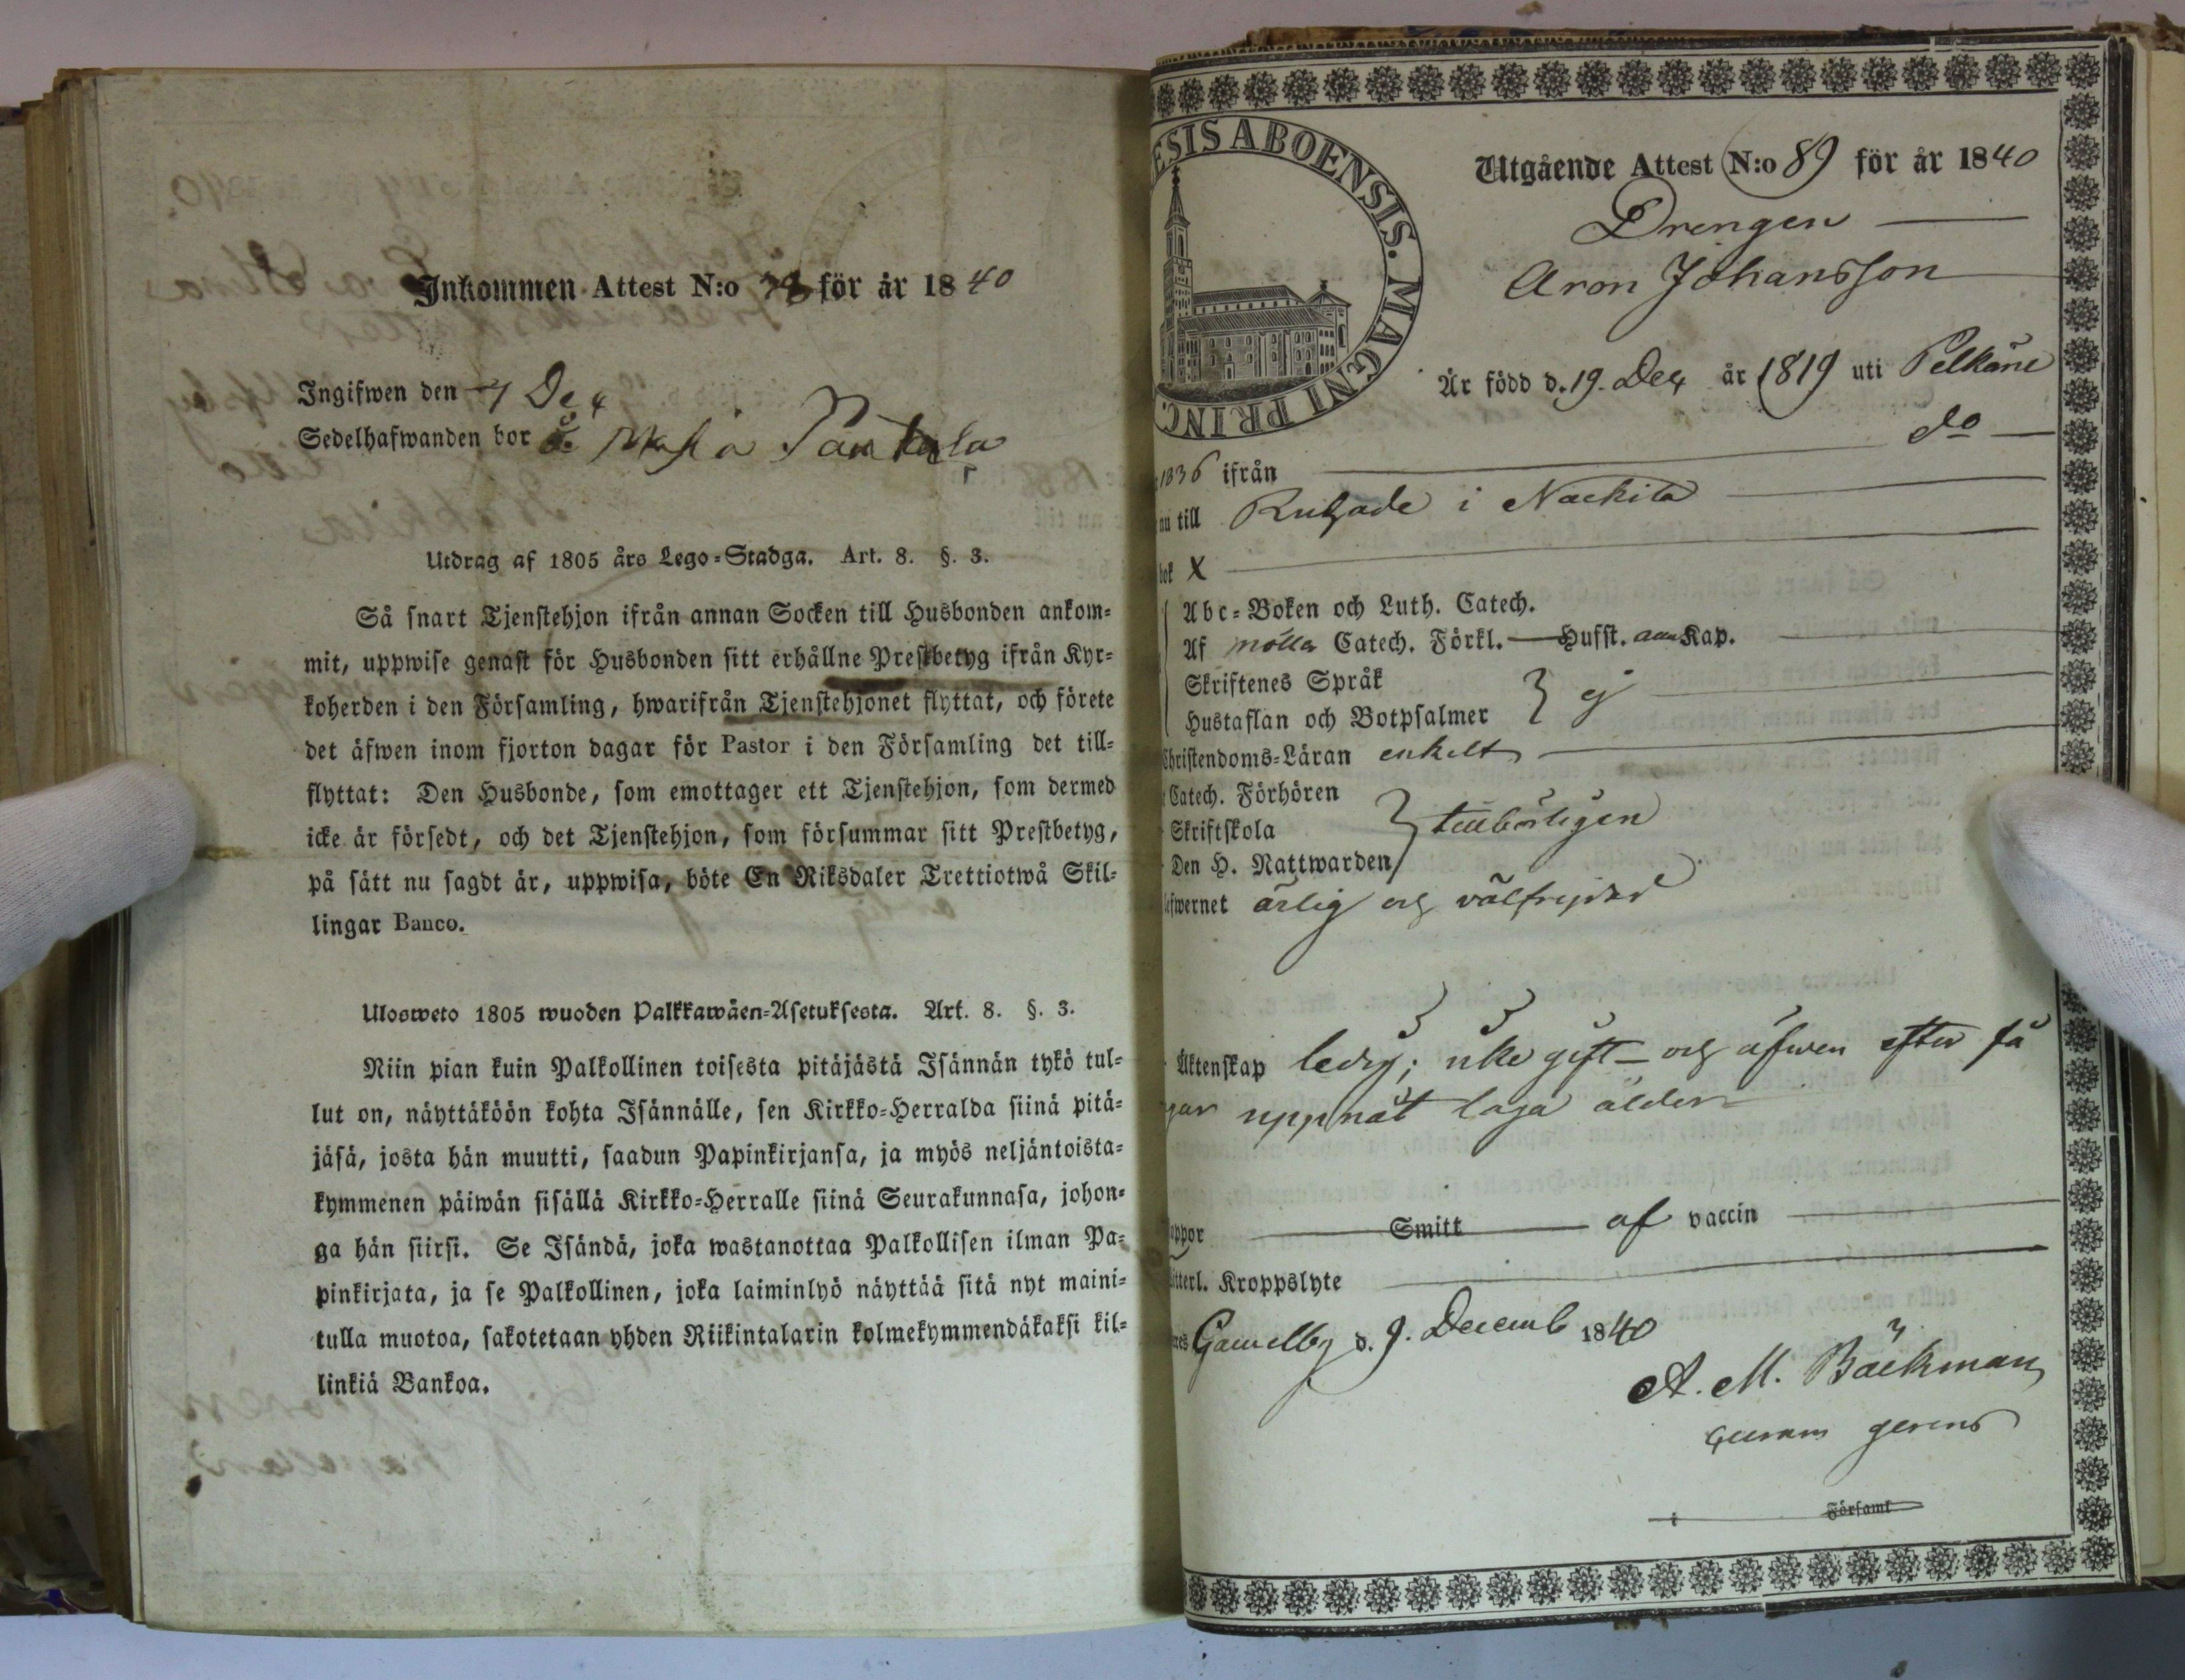 Inkommen Attest N:o för år 1840
Ingifwen den 7 Dec
Sedelhafwanden bor å
Utdrag af 1805 års Lego-Stadga. Art. 8. §. 3.
Så snart Tjenstehjon ifrån annan Socken till Husbonden ankom-
mit, uppwise genast för Husbonden sitt erhållne Prestbetyg ifrån Kyr-
koherden i den Församling, hwarifrån Tjenstehjonet flyttat, och förete
det äfwen inom fjorton dagar för Pastor i den Församling det till-
flyttat: Den Husbonde, som emottager ett Tjenstehjon, som dermed
icke är försedt, och det Tjenstehjon, som försummar sitt Prestbetyg,
på sätt nu sagdt är, uppwisa, böte En Riksdaler Trettiotwå Skil-
lingar Banco.
Ulosweto 1805 wuoden Palkkawäen-Asetuksesta. Art. 8. §. 3.
Niin pian kuin Palkollinen toisesta pitäjästä Isännän tykö tul-
lut on, näyttäköön kohta Isännälle, sen Kirkko-Herralda siinä pitä-
jäsä, josta hän muutti, saadun Papinkirjansa, ja myös neljäntoista-
kymmenen päiwän sisällä Kirkko-Herralle siinä Seurakunnasa, johon-
ga hän siirsi. Se Isändä, joka wastanottaa Palkollisen ilman Pa-
pinkirjata, ja se Palkollinen, joka laiminlyö näyttää sitä nyt maini-
tulla muotoa, sakotetaan yhden Riikintalarin kolmekymmendäkaksi kil-
linkiä Bankoa.
ESIS ABOENSIS. MAGNI PRINC.
Utgående Attest N:o 89 för år 1840
Drengen
Aron Johansson
Är född d. 19. Dec år 1819 uti Pelkäne
1836 ifrån do
nu till i Nackila
bok X
Abc-Boken och Luth. Catech.
Af Catech. Förkl. Husst. Kap.
Skriftenes Språk
Hustaflan och Botpsalmer } ej
Christendoms-Läran enkelt
Catech. Förhören
Skriftskola } tillbörligen
Den H. Nattwarden
lefwernet ärlig och välfrejdad
Äktenskap ledig; icke gift och äfwen efter få
gar uppnåt laga ålder
oppor Smitt af vaccin
itterl. Kroppslyte
Gamelby d. 9. Decemb 1840
A. M. Bäckman
curam gerens
i Församl